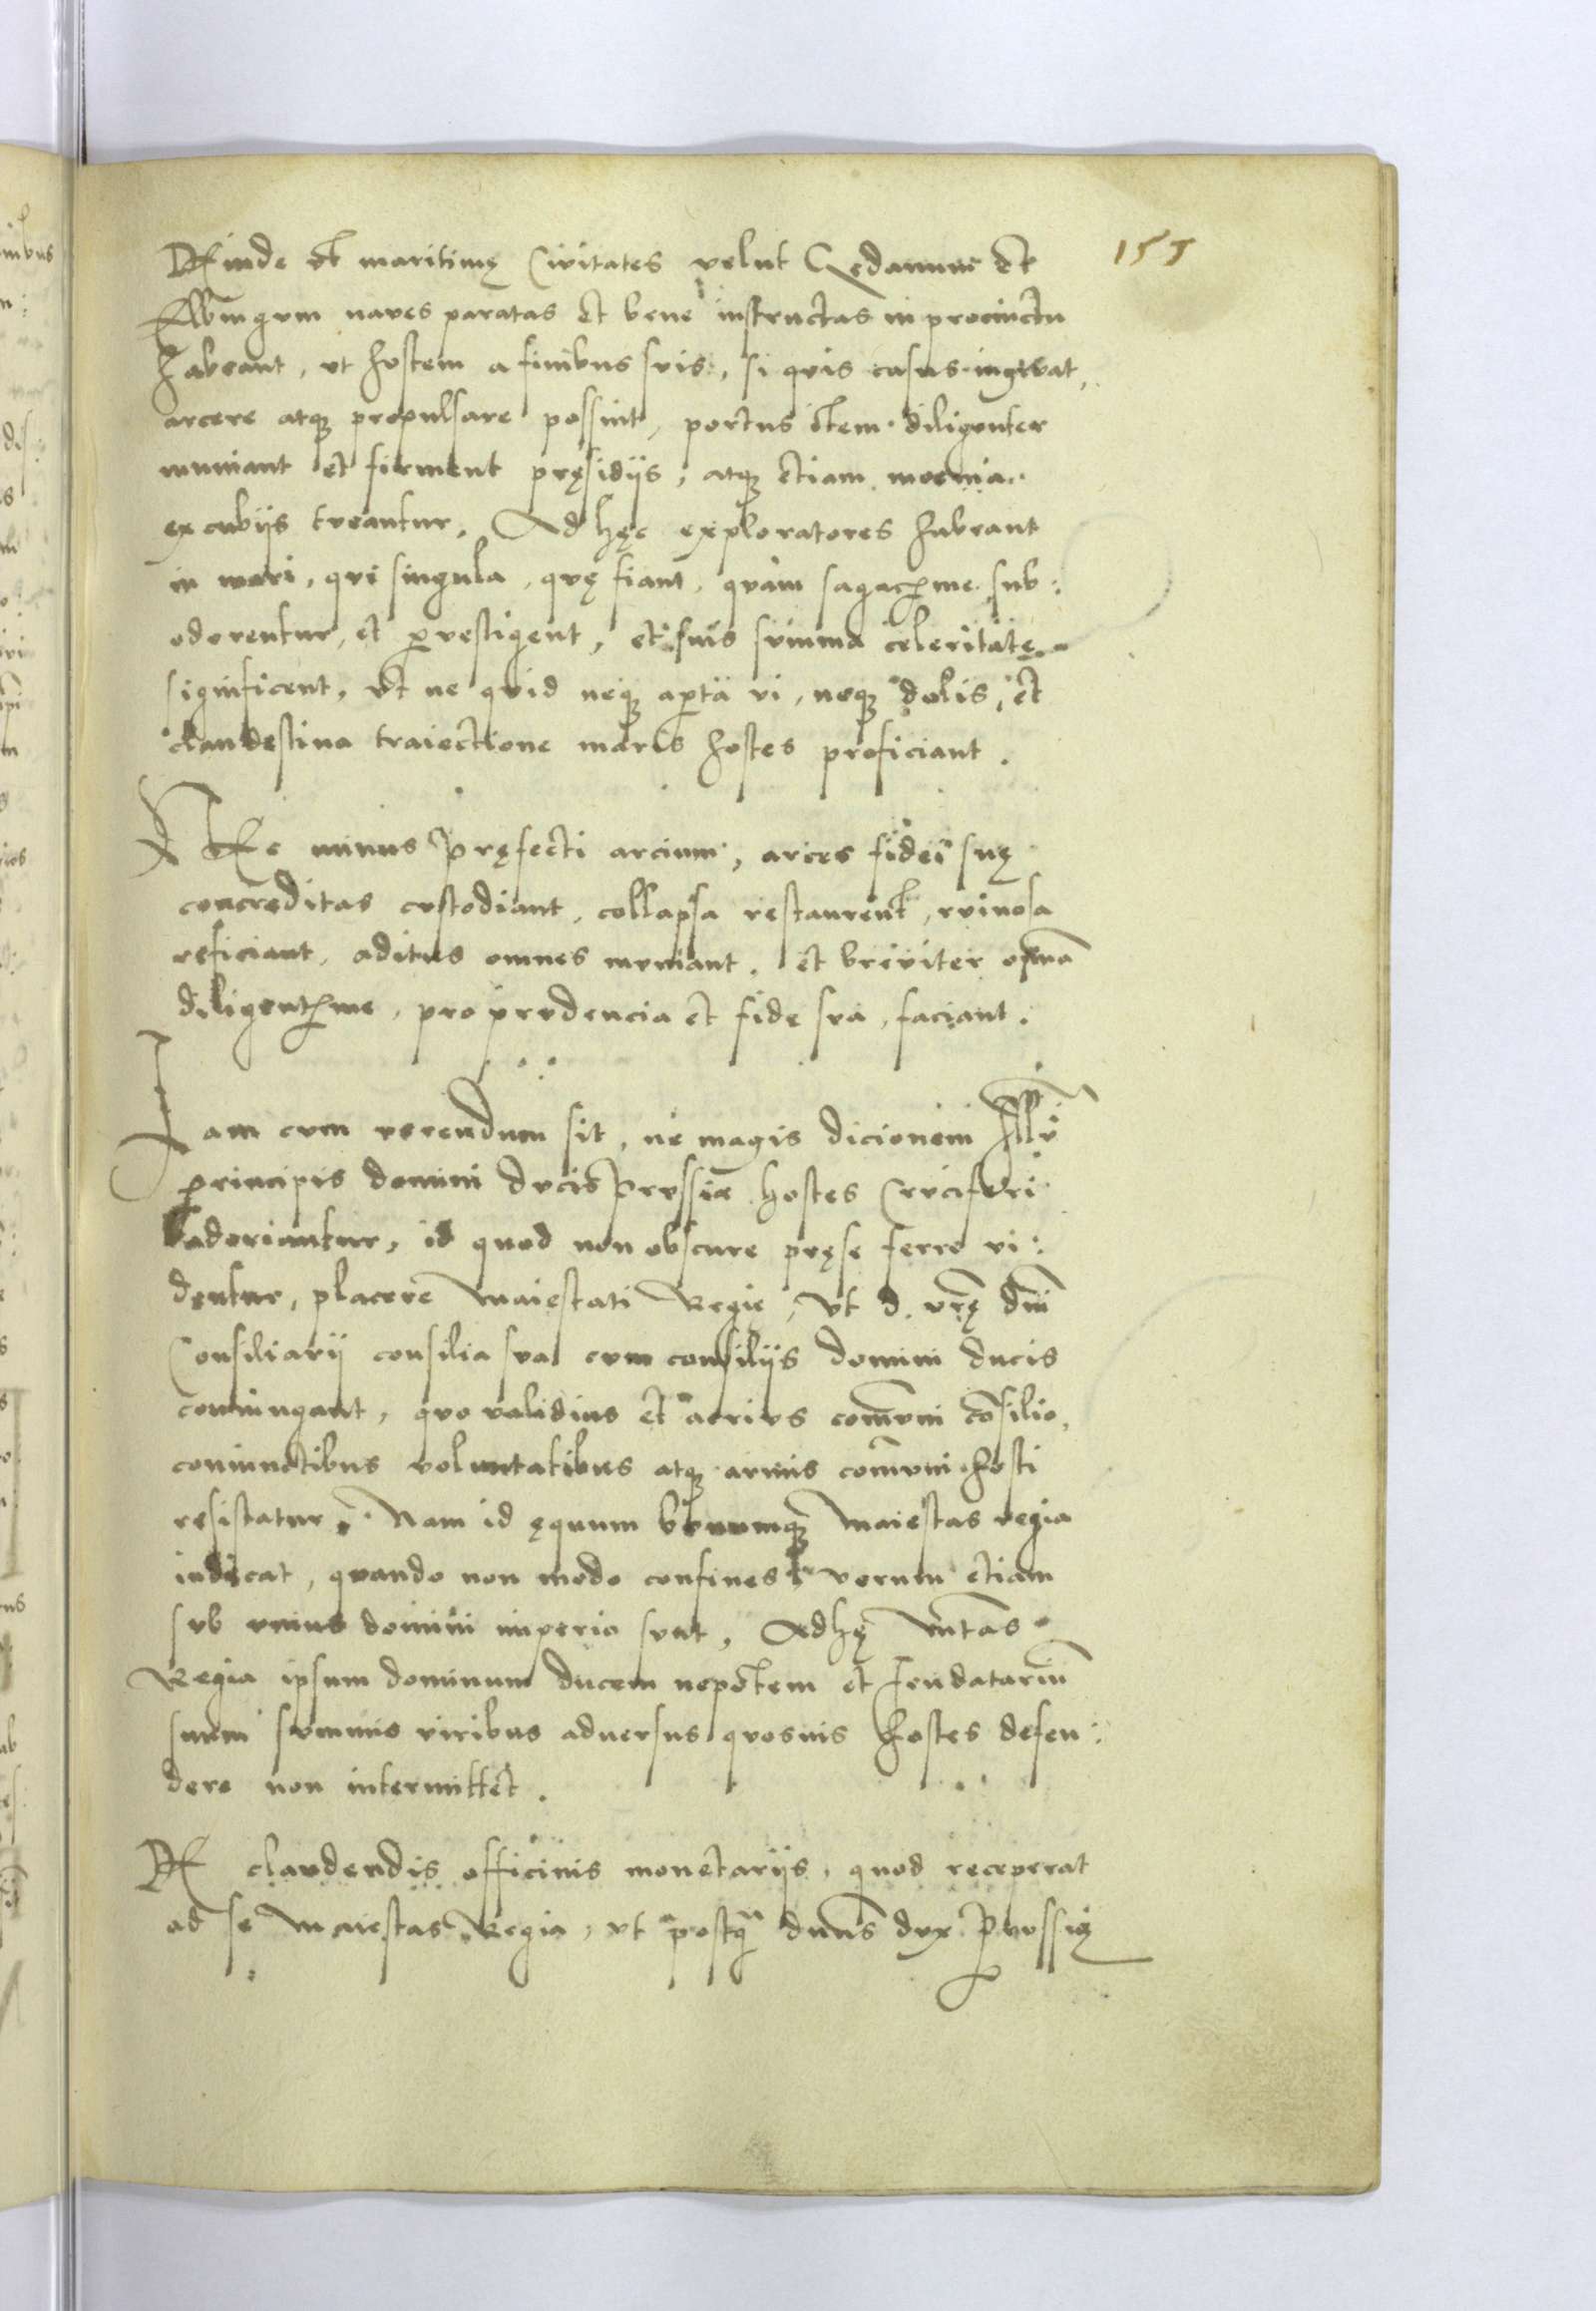 155
DEinde vt maritimę Ciuitates velut Gedanum et
Elbingum naues paratas et bene instructas in procinctu
habeant, vt hostem a finibus suis, si quis casus ingruat,
arcere atq3 propulsare possint, portus item diligenter
muniant et firment pręsidijs, atq3 etiam moenia
excubijs tueantur, Ad hęc exploratores habeant
in mari, qui singula, quę fiant, quam sagacissime sub:
odorentur, et pervestigent, et suis summa celeritate
significent, vt ne quid neq3 aperta vi, neq3 dolis, et
clandestina traiectione maris hostes proficiant.
NEc minus Pręfecti arcium, arces fidei suę
concreditas custodiant, collapsa restaurent, ruinosa
reficiant, aditus omnes muniant, et breuiter omnia
diligentissime, pro prudencia et fide sua, faciant.
Iam cum verendum sit, ne magis dicionem Illmi
principis domini ducis Prussiæ hostes Cruciferi
adoriantur, id quod non obscure pręse ferre vi:
dentur, placere Maiestati Regie, vt d. vrę dni
Consiliarij consilia sua cum consilijs domini ducis
coniungant, quo validius et acrius com̄uni cōsilio,
coniunctibus voluntatibus atq3 armis com̄uni hosti
resistatur, Nam id ęquum bonumq3 Maiestas regia
iudicat, quando non modo confines verum etiam
sub vnius domini imperio sunt, Adhę Mtas
Regia ipsum dominum ducem nepotem et feudatariū
suum summis viribus aduersus quosuis hostes defen:
dere non intermittet.
DE claudendis officinis monetarijs, quod receperat
ad se Maiestas Regia, vt postq̄ dnns dux Prussię